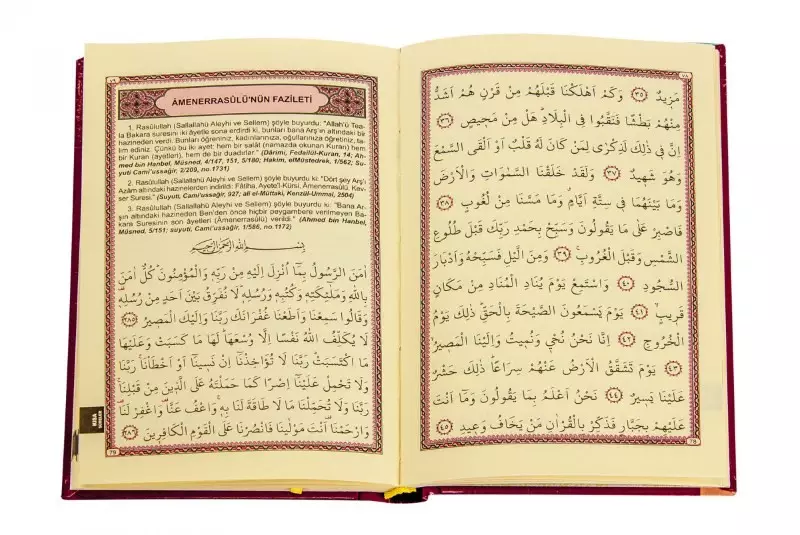 ٧٨
مَزِيدٌ ﴿٣٥﴾ وَكَمْ اَهْلَكْنَا قَبْلَهُمْ مِنْ قَرْنٍ هُمْ اَشَدُّ
مِنْهُمْ بَطْشًا فَنَقَّبُوا فِي الْبِلَادِ هَلْ مِنْ مَحِيصٍ ﴿٣٦﴾
اِنَّ فِي ذٰلِكَ لَذِكْرٰى لِمَنْ كَانَ لَهُ قَلْبٌ اَوْ اَلْقَى السَّمْعَ
وَهُوَ شَهِيدٌ ﴿٣٧﴾ وَلَقَدْ خَلَقْنَا السَّمٰوَاتِ وَالْاَرْضَ
وَمَا بَيْنَهُمَا فِي سِتَّةِ اَيَّامٍ وَمَا مَسَّنَا مِنْ لُغُوبٍ ﴿٣٨﴾
فَاصْبِرْ عَلٰى مَا يَقُولُونَ وَسَبِّحْ بِحَمْدِ رَبِّكَ قَبْلَ طُلُوعِ
الشَّمْسِ وَقَبْلَ الْغُرُوبِ ﴿٣٩﴾ وَمِنَ الَّيْلِ فَسَبِّحْهُ وَاَدْبَارَ
السُّجُودِ ﴿٤٠﴾ وَاسْتَمِعْ يَوْمَ يُنَادِ الْمُنَادِ مِنْ مَكَانٍ
قَرِيبٍ ﴿٤١﴾ يَوْمَ يَسْمَعُونَ الصَّيْحَةَ بِالْحَقِّ ذٰلِكَ يَوْمُ
الْخُرُوجِ ﴿٤٢﴾ اِنَّا نَحْنُ نُحْيِي وَنُمِيتُ وَاِلَيْنَا الْمَصِيرُ
﴿٤٣﴾ يَوْمَ تَشَقَّقُ الْاَرْضُ عَنْهُمْ سِرَاعًا ذٰلِكَ حَشْرٌ
عَلَيْنَا يَسِيرٌ ﴿٤٤﴾ نَحْنُ اَعْلَمُ بِمَا يَقُولُونَ وَمَا اَنْتَ
عَلَيْهِمْ بِجَبَّارٍ فَذَكِّرْ بِالْقُرْاٰنِ مَنْ يَخَافُ وَعِيدِ ﴿٤٥﴾
78
٧٩
ÂMENERRASÛLÜ'NÜN FAZİLETİ
1. Rasûlullah (Sallallahü Aleyhi ve Sellem) şöyle buyurdu: "Allah'ü Tea-
la Bakara suresini iki âyetle sona erdirdi ki, bunları bana Arş'ın altındaki bir
hazineden verdi. Bunları öğreniniz, kadınlarınıza, oğullarınıza öğretiniz, ta-
lim ediniz. Çünkü bu iki ayet; hem bir salât (namazda okunan Kuran) hem
bir Kuran (ayetleri), hem de bir duadırlar." (Dârimi, Fedailül-Kuran, 14; Ah-
med bin Hanbel, Müsned, 4/147, 151, 5/180; Hakim, elMüstedrek, 1/562; Su-
yuti Cami'ussağir, 2/209, no.1731)
2. Rasûlullah (Sallallahü Aleyhi ve Sellem) şöyle buyurdu ki: "Dört şey Arş'i
Azâm altındaki hazinelerden indirildi: Fâtiha, Ayete'l-Kürsi, Âmenerrasûlü, Kev-
ser Suresi." (Suyuti, Cami'ussağir, 927; ali el-Müttaki, Kenzül-Ummal, 2504)
3. Rasûlullah (Sallallahü Aleyhi ve Sellem) şöyle buyurdu ki: "Bana Ar-
şın altındaki hazineden Ben'den önce hiçbir peygambere verilmeyen Ba-
kara Suresinin son âyetleri (Âmenerrasûlü) verildi." (Ahmed bin Hanbel,
Müsned, 5/151; suyuti, Cami'ussağir, 1/586, no.1172)
بِسْمِ اللهِ الرَّحْمٰنِ الرَّحِيمِ
اٰمَنَ الرَّسُولُ بِمَا اُنْزِلَ اِلَيْهِ مِنْ رَبِّهِ وَالْمُؤْمِنُونَ كُلٌّ اٰمَنَ
بِاللهِ وَمَلٰئِكَتِهِ وَكُتُبِهِ وَرُسُلِهِ لَا نُفَرِّقُ بَيْنَ اَحَدٍ مِنْ رُسُلِهِ
وَقَالُوا سَمِعْنَا وَاَطَعْنَا غُفْرَانَكَ رَبَّنَا وَاِلَيْكَ الْمَصِيرُ ﴿٢٨٥﴾
لَا يُكَلِّفُ اللهُ نَفْسًا اِلَّا وُسْعَهَا لَهَا مَا كَسَبَتْ وَعَلَيْهَا
مَا اكْتَسَبَتْ رَبَّنَا لَا تُؤَاخِذْنَا اِنْ نَسِينَا اَوْ اَخْطَاْنَا رَبَّنَا
وَلَا تَحْمِلْ عَلَيْنَا اِصْرًا كَمَا حَمَلْتَهُ عَلَى الَّذِينَ مِنْ قَبْلِنَا
رَبَّنَا وَلَا تُحَمِّلْنَا مَا لَا طَاقَةَ لَنَا بِهِ وَاعْفُ عَنَّا وَاغْفِرْ لَنَا
وَارْحَمْنَا اَنْتَ مَوْلٰينَا فَانْصُرْنَا عَلَى الْقَوْمِ الْكَافِرِينَ ﴿٢٨٦﴾
79
KISA
SURELER